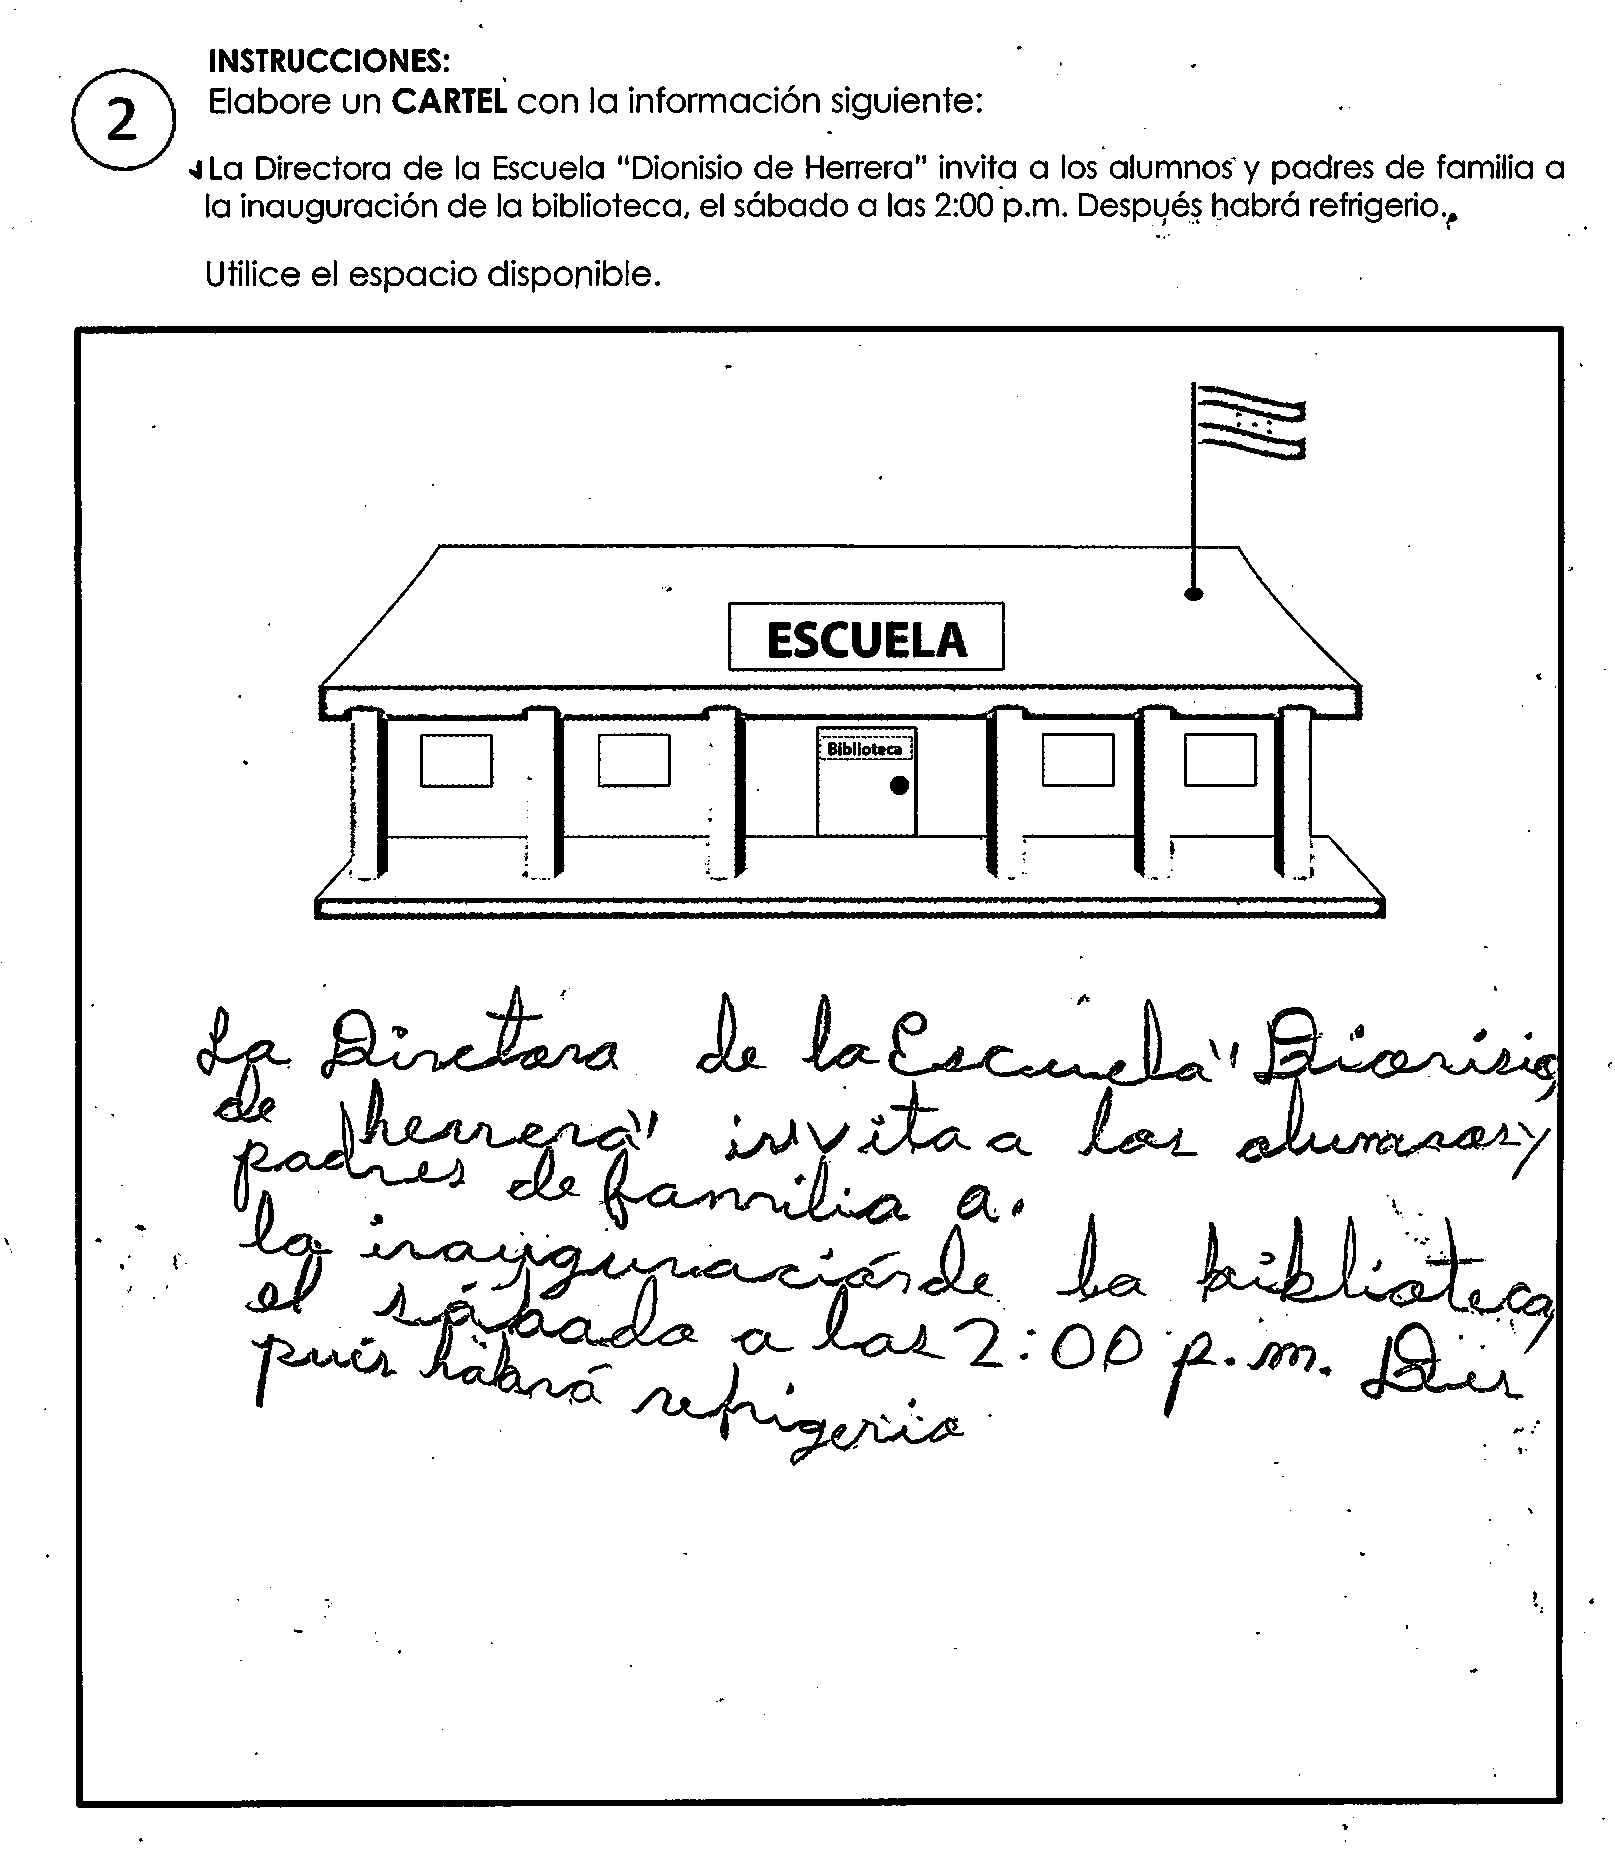 INSTRUCCIONES:
2
Elabore un CARTEL con la información siguiente:
La Directora de la Escuela "Dionisio de Herrera" invita a los alumnos y padres de familia a
la inauguración de la biblioteca, el sábado a las 2:00 p.m. Después habrá refrigerio.
Utilice el espacio disponible.
ESCUELA
Biblioteca
La Dirctora de la Escuela "Dionisio
de herrera" invita a los alumnos y
padres de familia a.
la inauguración de la biblioteca,
el sábado a las 2:00 p.m. Des
pués habrá refrigerio